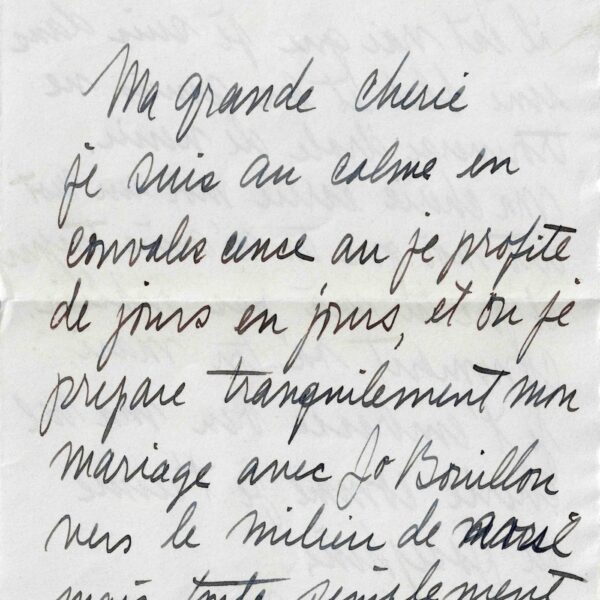 Ma grande cherie
je suis au calme en
convalescence au je profite
de jours en jours, et ou je
prepare tranquilement mon
mariage avec Jo Bouillon
vers le milieu de
mais toute simplement